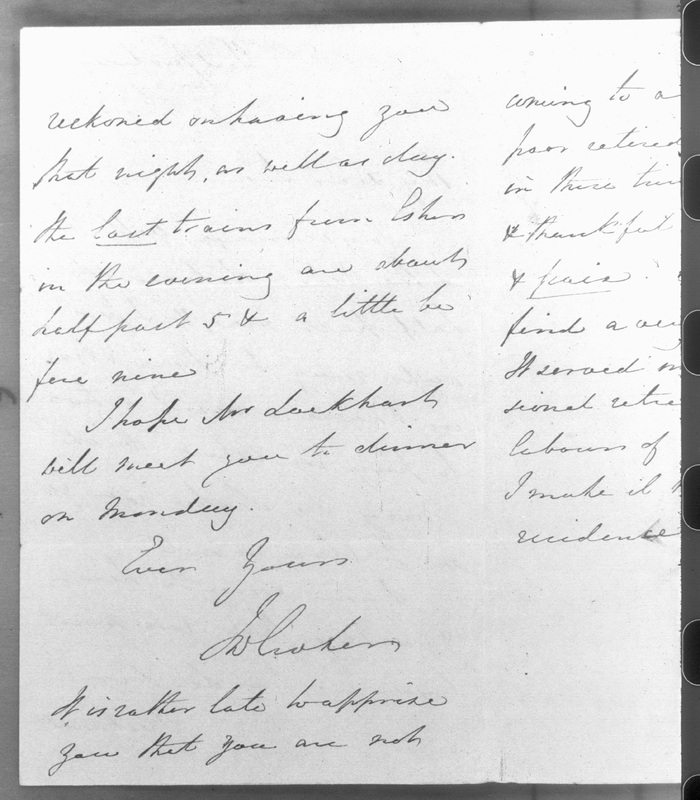 reckoned on having you
that night, as well as day.
the last trains from Esher
in the evening are about
half past 5 & a little be
fore nine
I hope Mr Lockhart
will meet you to dinner
on Monday.
Ever Yours
JWCroker
It is rather late to apprise
you that you are not
coming to a
poor retired
in these
& thankful
& pain
find a very
It served
sional
labours of
I make it
residence